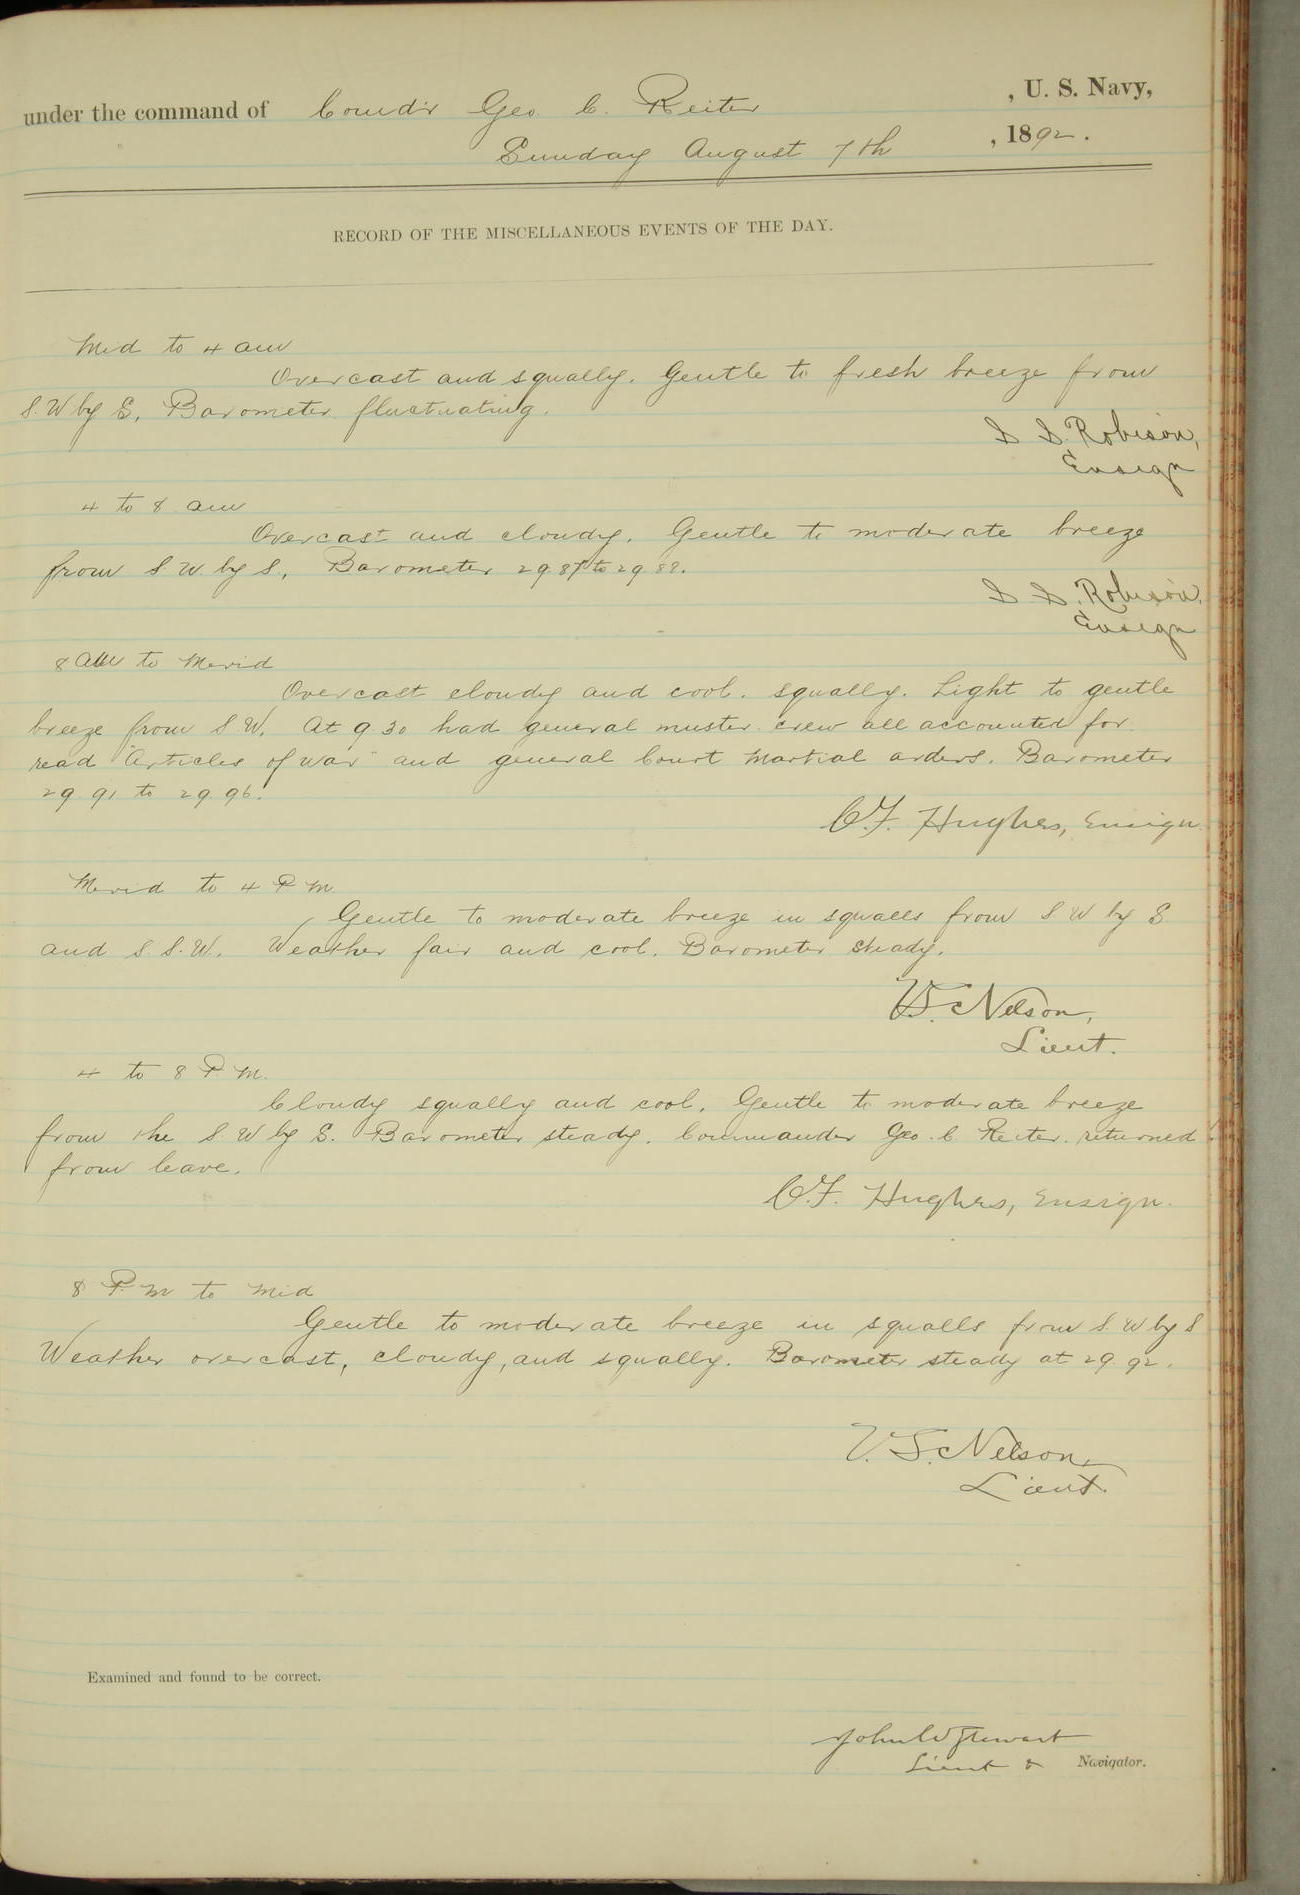 under the command of Comd'r Geo. C. Reiter, U. S. Navy,
Sunday August 7th, 1892.
RECORD OF THE MISCELLANEOUS EVENTS OF THE DAY.
Mid to 4 am
Overcast and squally. Gentle to fresh breeze from
S.W by S. Barometer fluctuating.
S. S. Robison,
Ensign
4 to 8 am
Overcast and cloudy. Gentle to moderate breeze
from S.W. by S., Barometer 29.87 to 29.88.
S. S. Robison,
Ensign
8 am to Merid
Overcast cloudy and cool. squally. Light to gentle
breeze from S.W. At 9 30 had general muster crew all accounted for
read "Articles of War" and general Court Martial orders. Barometer
29.91 to 29.96.
C.F. Hughes, Ensign
Merid to 4 P.M.
Gentle to moderate breeze in squalls from S W by S
and S.S.W. Weather fair and cool. Barometer steady.
V.S. Nelson,
Lieut.
4 to 8 P.M.
Cloudy squally and cool. Gentle to moderate breeze
from the S.W by S. Barometer steady. Commander Geo. C. Reiter returned
from leave.
C.F. Hughes, Ensign.
8 P.M to Mid
Gentle to moderate breeze in squalls from S.W by S
Weather overcast, cloudy, and squally. Barometer steady at 29.92.
V. S. Nelson,
Lieut.
Examined and found to be correct.
John W Stewart
Lieut & Navigator.